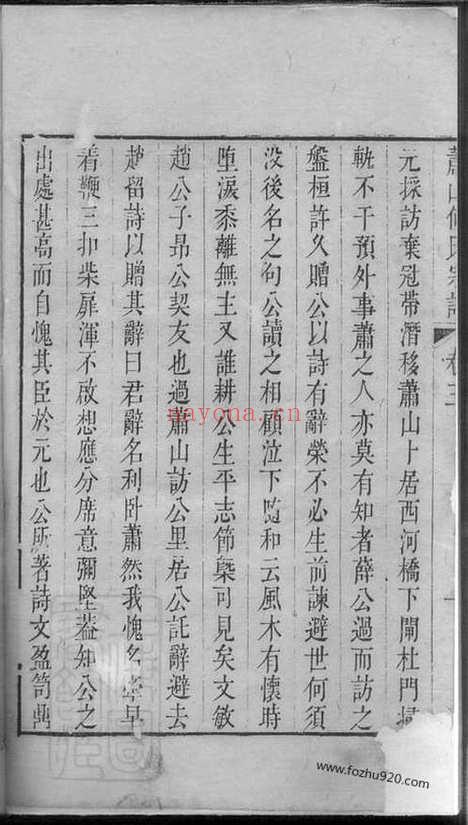 蕭山何氏宗譜 卷三
元採訪棄冠帶潛移蕭山卜居西河橋下閉杜門掃
軌不干預外事蕭之人亦莫有知者薛公過而訪之
盤桓許久贈公以詩有辭榮不必生前諫避世何須
没後名之句公讀之相顧泣下隨和云風木有懷時
墮淚黍離無主又誰耕公生平志節槩可見矣文敏
趙公子昂公契友也過蕭山訪公里居公託辭避去
趙留詩以贈其辭曰君辭名利卧蕭然我愧名牽早
着鞭三扣柴扉渾不啟想應分席意彌堅葢知公之
出處甚高而自愧其臣於元也公所著詩文盈笥典
nayona.cn
www.fozhu920.com